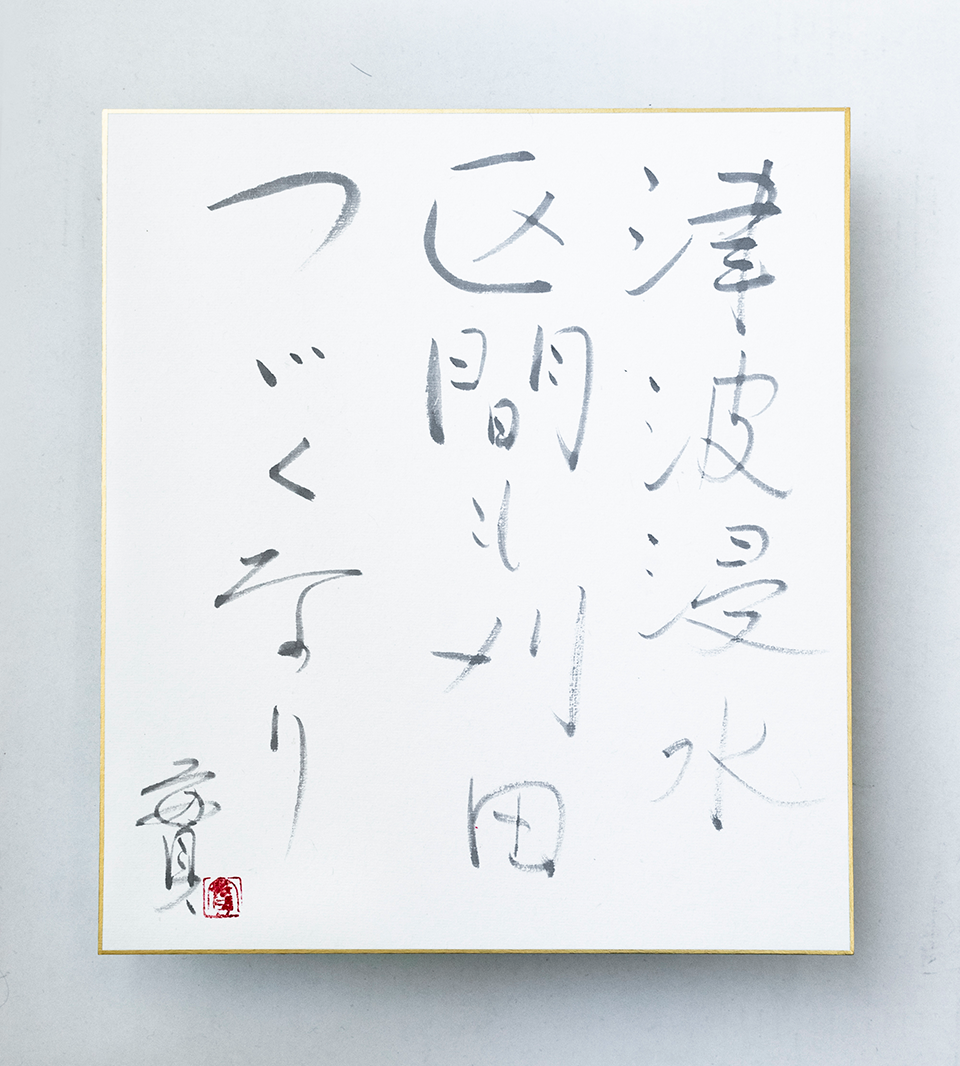 津波浸水
区間も刈田
つゞくなり
實